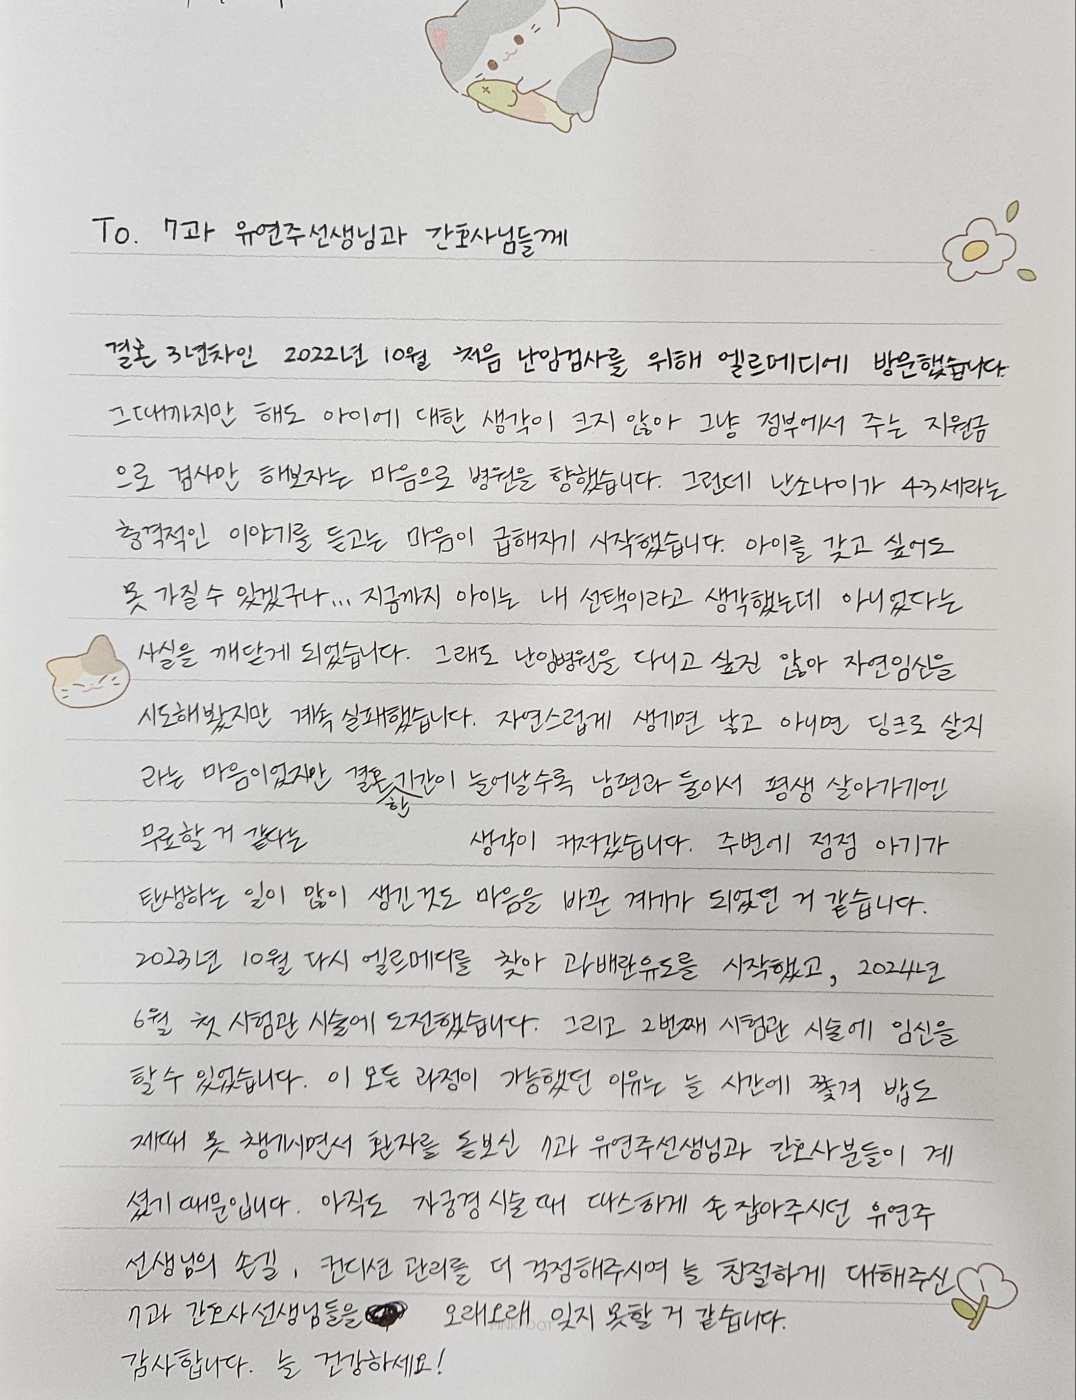 To. 7과 유연주선생님과 간호사님들께
결혼 3년차인 2022년 10월 처음 난임검사를 위해 엘르메디에 방문했습니다.
그때까지만 해도 아이에 대한 생각이 크지 않아 그냥 정부에서 주는 지원금
으로 검사만 해보자는 마음으로 병원을 향했습니다. 그런데 난소나이가 43세라는
충격적인 이야기를 듣고는 마음이 급해지기 시작했습니다. 아이를 갖고 싶어도
못 가질 수 있겠구나... 지금까지 아이는 내 선택이라고 생각했는데 아니었다는
사실을 깨닫게 되었습니다. 그래도 난임병원을 다니고 싶진 않아 자연임신을
시도해봤지만 계속 실패했습니다. 자연스럽게 생기면 낳고 아니면 딩크로 살지
라는 마음이었지만 결혼한 기간이 늘어날수록 남편과 둘이서 평생 살아가기엔
무료할 거 같다는 생각이 커져갔습니다. 주변에 점점 아기가
탄생하는 일이 많이 생긴것도 마음을 바꾼 계기가 되었던 거 같습니다.
2023년 10월 다시 엘르메디를 찾아 과배란유도를 시작했고, 2024년
6월 첫 시험관 시술에 도전했습니다. 그리고 2번째 시험관 시술에 임신을
할 수 있었습니다. 이 모든 과정이 가능했던 이유는 늘 시간에 쫓겨 밥도
제때 못 챙기시면서 환자를 돌보신 7과 유연주선생님과 간호사분들이 계
셨기 때문입니다. 아직도 자궁경 시술 때 따스하게 손 잡아주시던 유연주
선생님의 손길, 컨디션 관리를 더 걱정해주시며 늘 친절하게 대해주신
7과 간호사선생님들을 오래오래 잊지 못할 거 같습니다.
감사합니다. 늘 건강하세요!